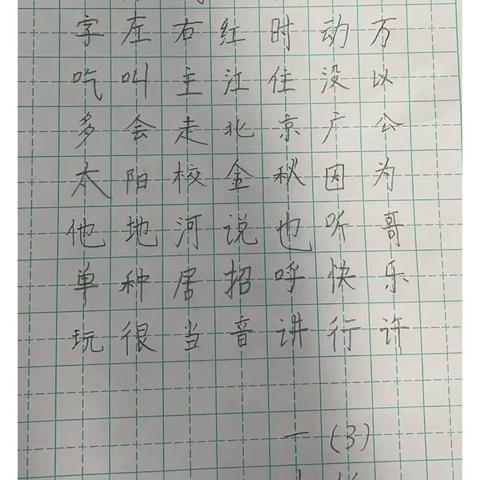 字左右红时动万
吃叫主江住没以
多会走北京广公
太阳校金秋因为
他地河说也听哥
单种居招呼快乐
玩很当音讲行许
一(3)